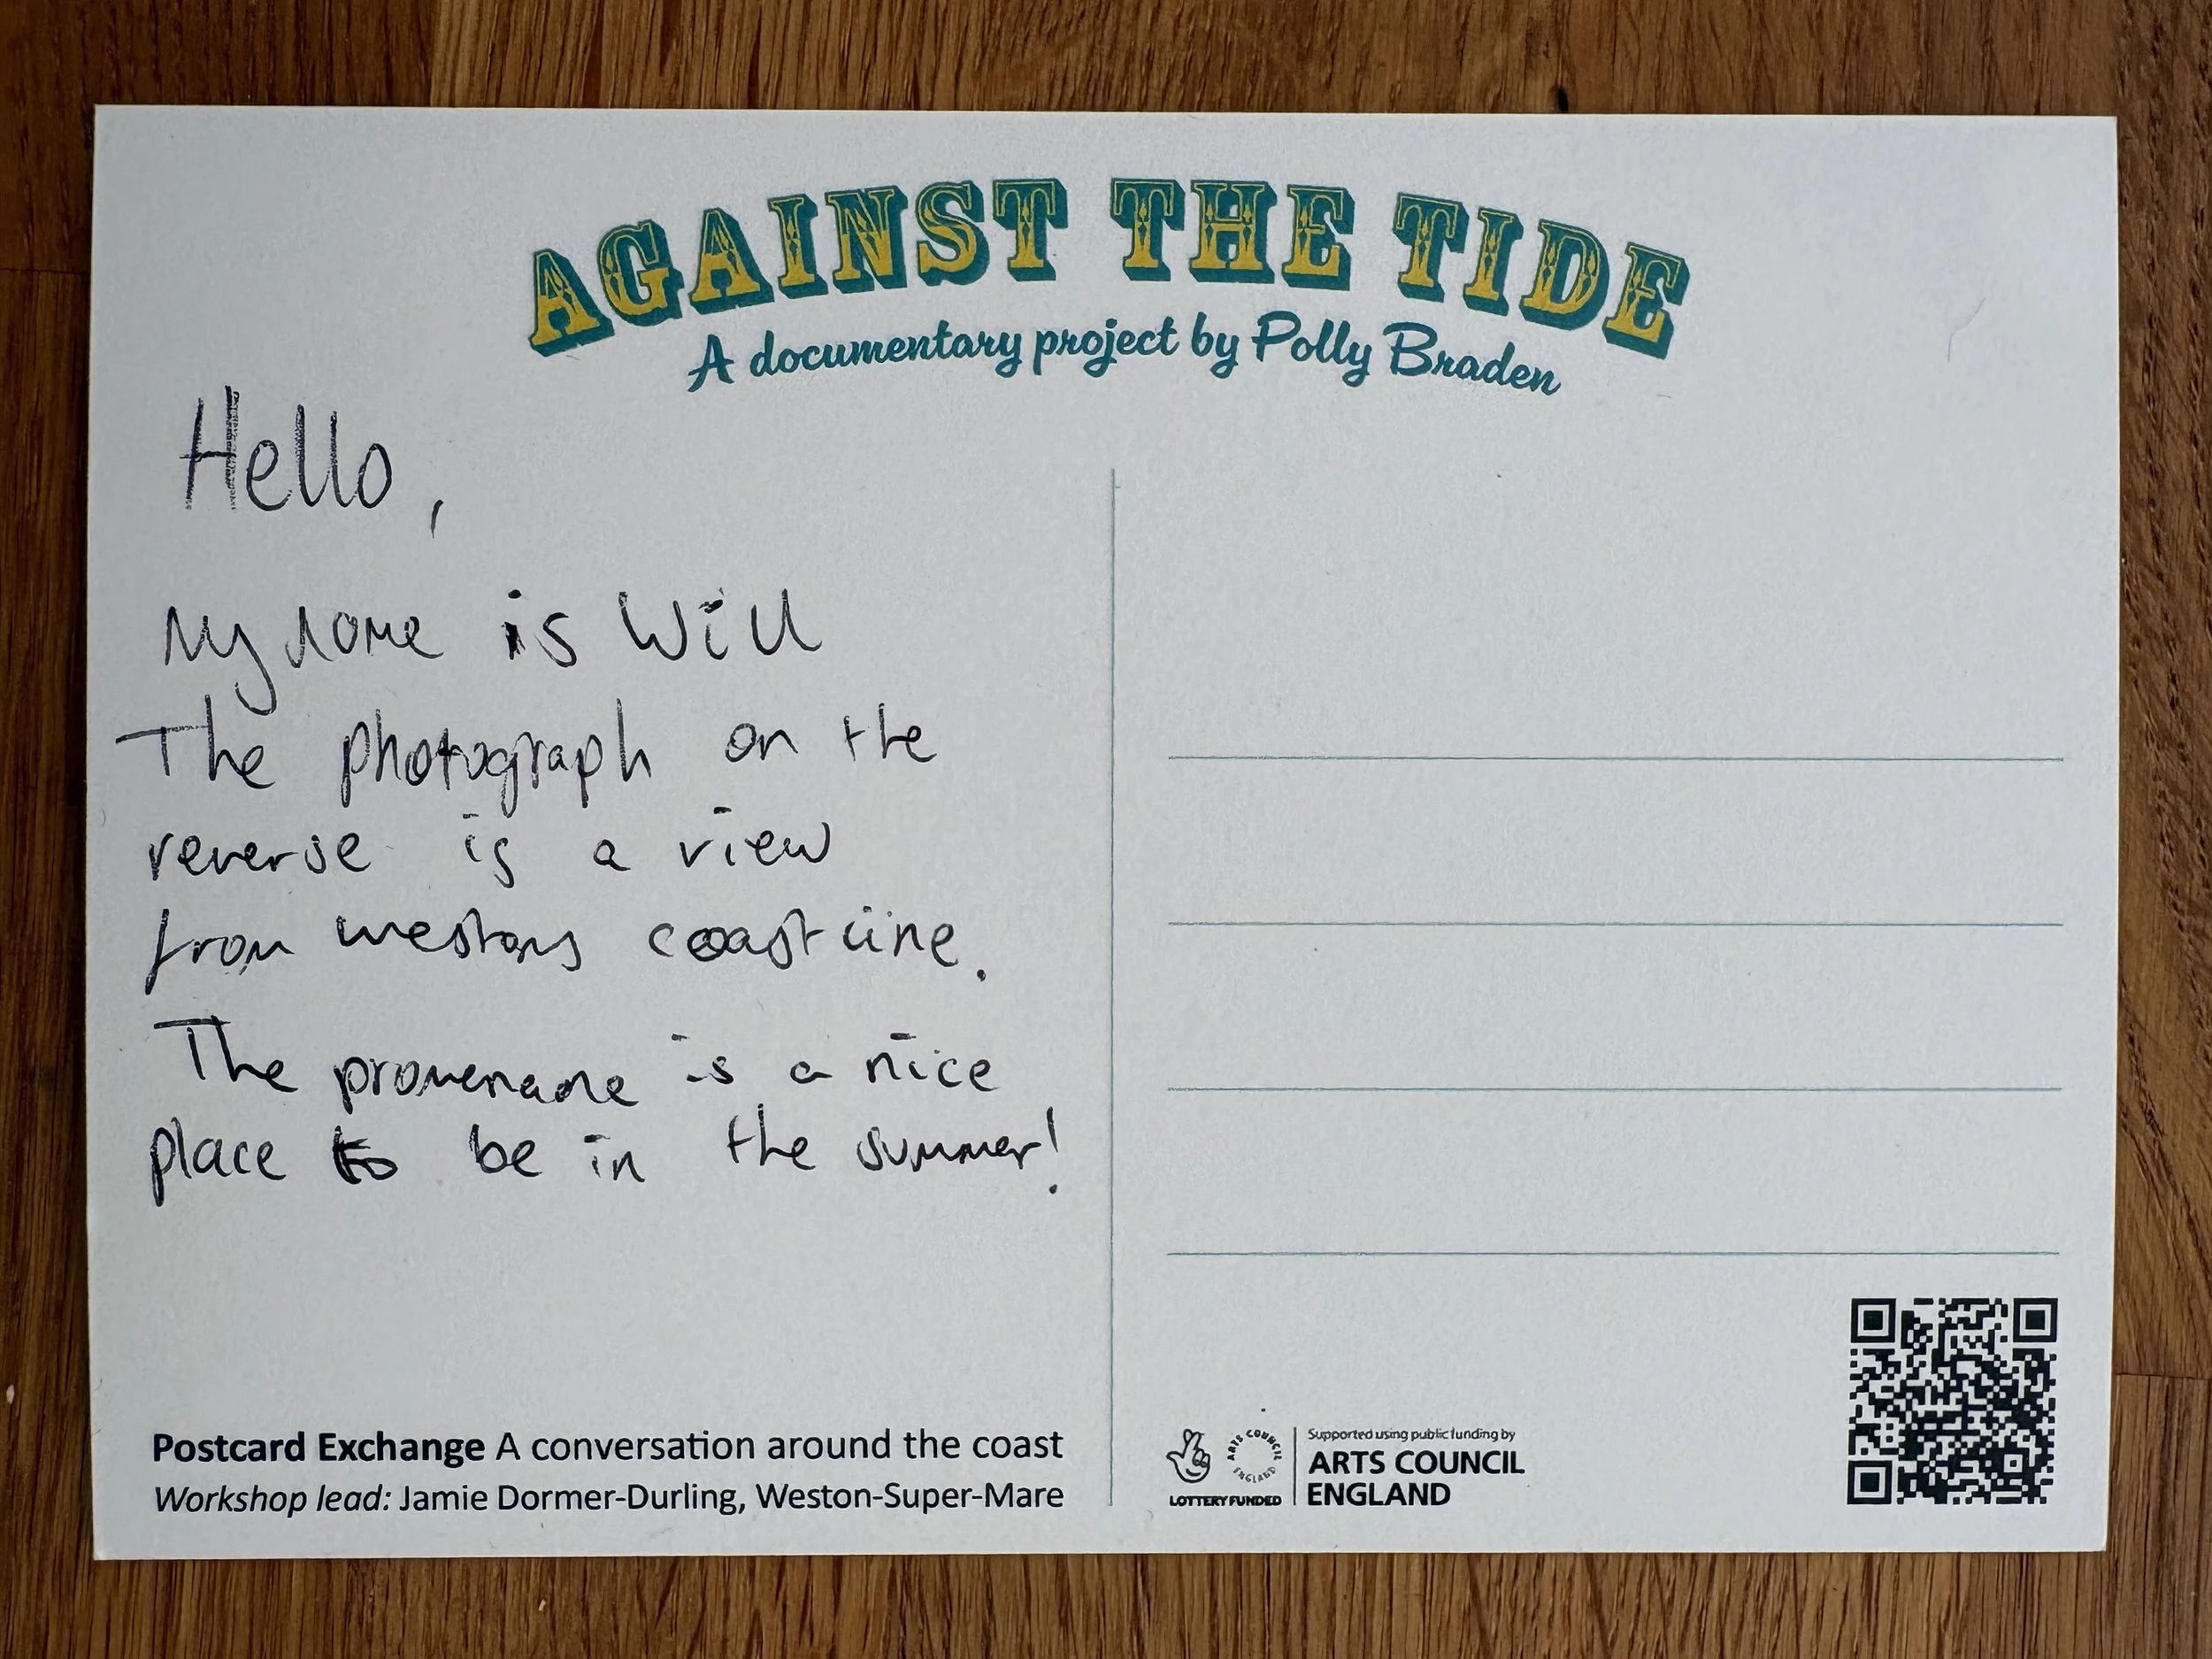 AGAINST THE TIDE
A documentary project by Polly Braden
Hello,
My name is Will
The photograph on the
reverse is a view
from westons coastline.
The promenade is a nice
place to be in the summer!
Postcard Exchange A conversation around the coast
Workshop lead: Jamie Dormer-Durling, Weston-Super-Mare
LOTTERY FUNDED
ARTS COUNCIL ENGLAND
Supported using public funding by
ARTS COUNCIL
ENGLAND